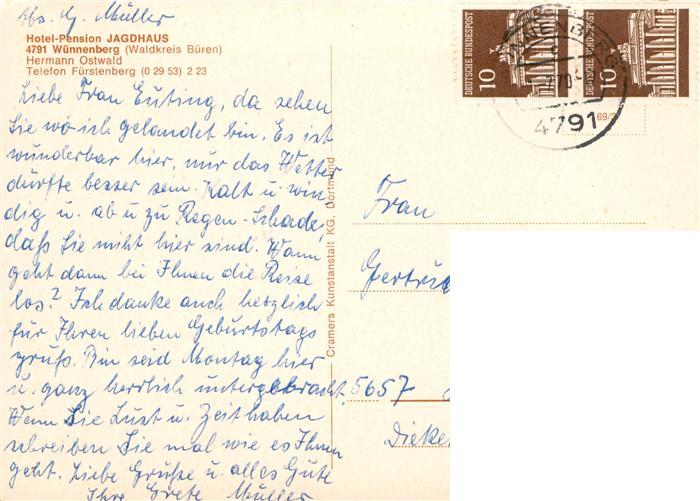 Abs. G. Müller
Hotel-Pension JAGDHAUS
4791 Wünnenberg (Waldkreis Büren)
Hermann Ostwald
Telefon Fürstenberg (0 29 53) 2 23
Liebe Frau Euting, da sehen
Sie wo ich gelandet bin. Es ist
wunderbar hier, nur das Wetter
dürfte besser sein. Kalt u. win
dig u. ab u. zu Regen. Schade,
daß Sie nicht hier sind. Wann
geht dann bei Ihnen die Reise
los? Ich danke auch herzlich
für Ihren lieben Geburtstags
gruß. Bin seid Montag hier
u. ganz herrlich untergebracht.
Wenn Sie Lust u. Zeit haben
schreiben Sie mal wie es Ihnen
geht. Liebe Grüße u. alles Gute
Ihre Grete Müller
Cramers Kunstanstalt KG, Dortmund
DEUTSCHE BUNDESPOST
10
DEUTSCHE BUNDESPOST
10
4791
69/3
Frau
Gertrud
5657
Dieke